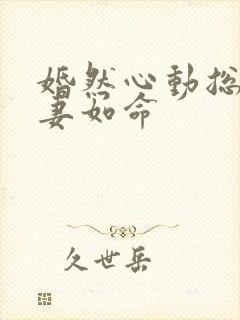 婚然心動总
妻如命
久世岳